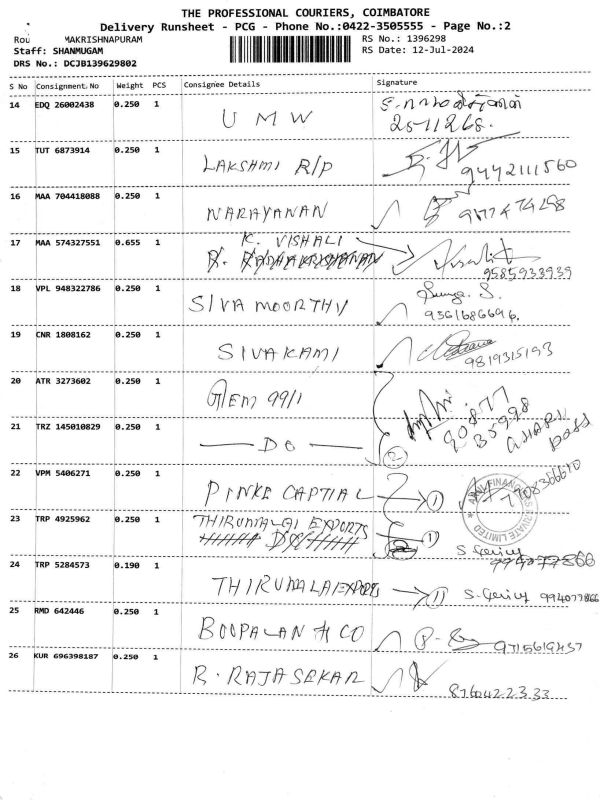 THE PROFESSIONAL COURIERS, COIMBATORE
Delivery Runsheet - PCG - Phone No.:0422-3505555 - Page No.:2
Rou MAKRISHNAPURAM
RS No.: 1396298
Staff: SHANMUGAM
RS Date: 12-Jul-2024
DRS No.: DCJB139629802
S No Consignment.No Weight PCS Consignee Details Signature
14 EDQ 26002438 0.250 1 U M W
15 TUT 6873914 0.250 1 LAKSHMI R/P 9442111560
16 MAA 704418088 0.250 1 NARAYANAN
17 MAA 574327551 0.655 1 K. VISHALI
R. RADHAKRISHNAN
9585933939
18 VPL 948322786 0.250 1 SIVA MOORTHY
19 CNR 1808162 0.250 1 SIVAKAMI 9819315193
20 ATR 3273602 0.250 1 GEM 99/1
21 TRZ 145010829 0.250 1 DO 2
22 VPM 5406271 0.250 1 PINKE CAPTIAL 1
23 TRP 4925962 0.250 1 THIRUMALAI EXPORTS 1
24 TRP 5284573 0.190 1 THIRUMALAI EXPORTS
25 RMD 642446 0.250 1 BOOPALAN & CO 9715619437
26 KUR 696398187 0.250 1 R. RAJASEKAR